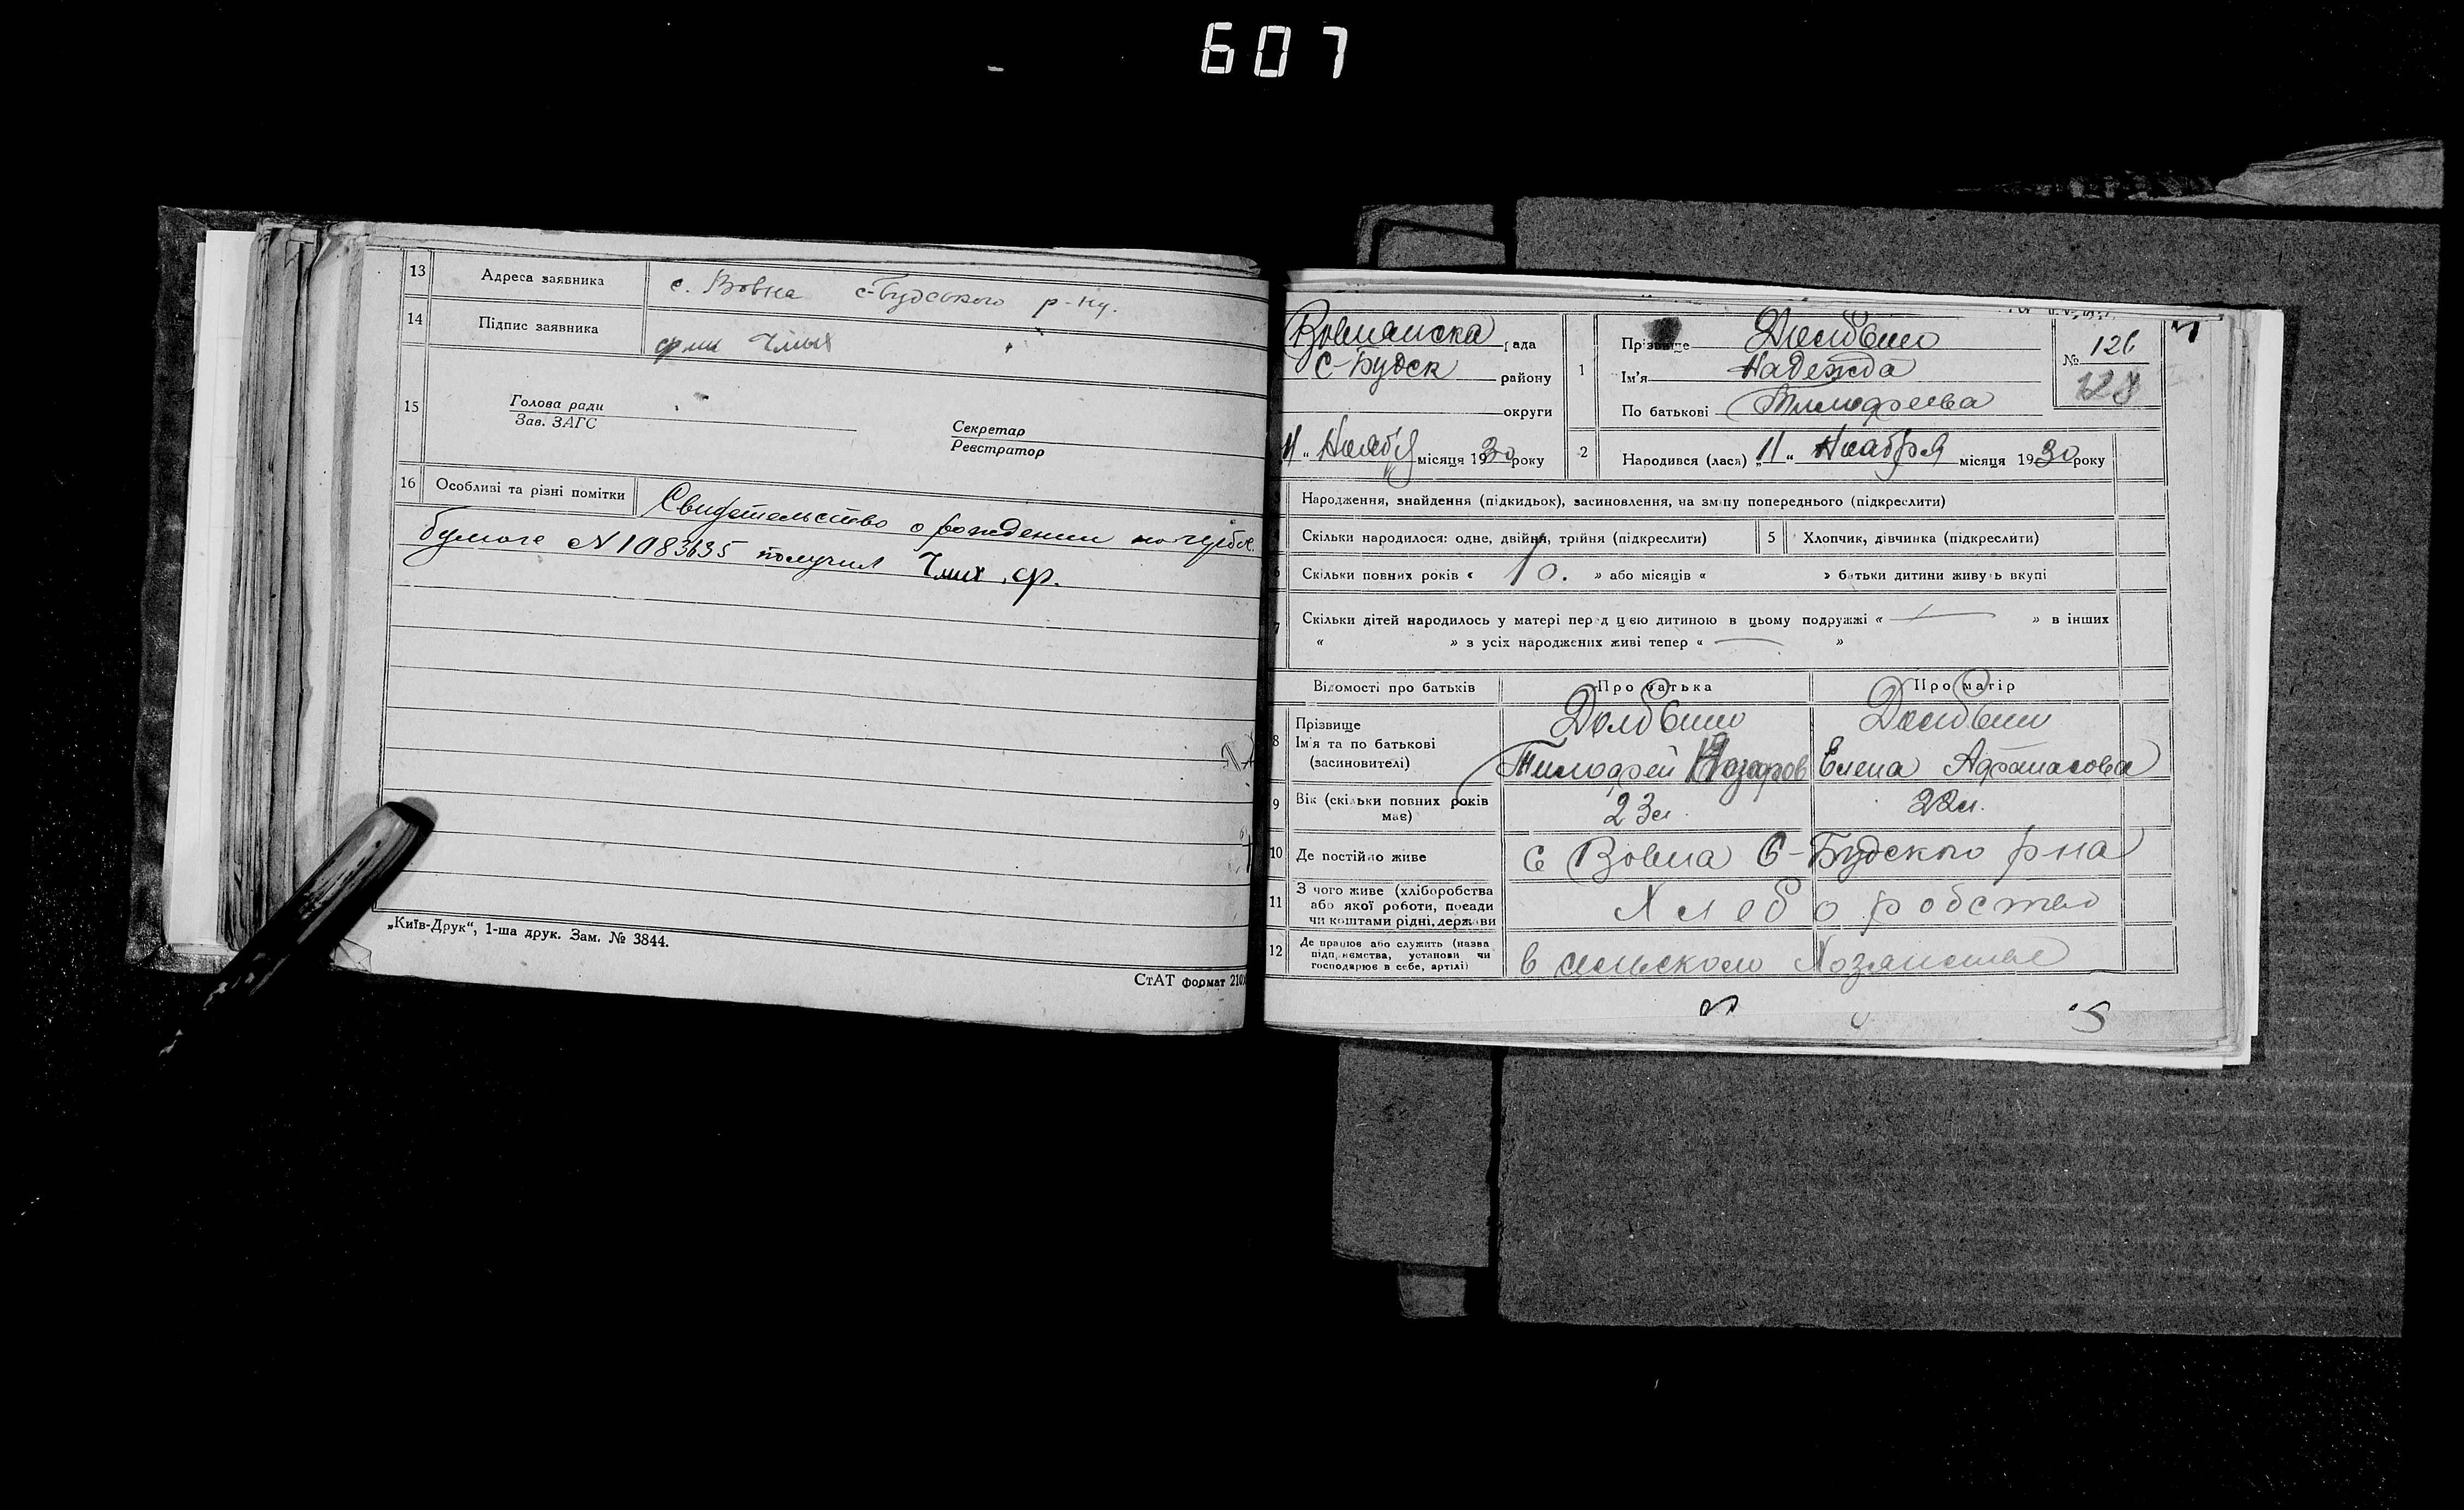 607
13 Адреса заявника с. Вовна с-Будського р-ну.
14 Підпис заявника
15 Голова ради
Зав. ЗАГС
Секретар
Реєстратор
16 Особливі та різні помітки Свидетельство о рождении
бумаге N 1083635 получил Чмых ф.
„Київ-Друк“, 1-ша друк. Зам. № 3844.
СтАТ формат 210
рада
С-Будск району
округи
11 „ місяця 1930 року
1 Прізвище
Ім'я Надежда
По батькові Тимофеева
№ 126
128
2 Народився (лася) „11“ Ноября місяця 1930 року
Народження, знайдення (підкидьок), засиновлення, на зміну попереднього (підкреслити)
Скільки народилося: одне, двійня, трійня (підкреслити) 5 Хлопчик, дівчинка (підкреслити)
6 Скільки повних років « 10. » або місяців « » батьки дитини живуть вкупі
7 Скільки дітей народилось у матері перед цією дитиною в цьому подружжі « — » в інших
« » з усіх народжених живі тепер « — »
Відомості про батьків Про батька Про матір
8 Прізвище
Ім'я та по батькові Тимофей Назаров Елена Афанасова
(засиновителі)
9 Вік (скільки повних років має) 23 л. 22 л.
10 Де постійно живе с Вовна С-Будского р на
11 З чого живе (хліборобства
або якої роботи, посади Хлеборобство
чи коштами рідні, держави
12 Де працює або служить (назва
підприємства, установи чи
господарює в себе, артілі) в сельском Хозяистве